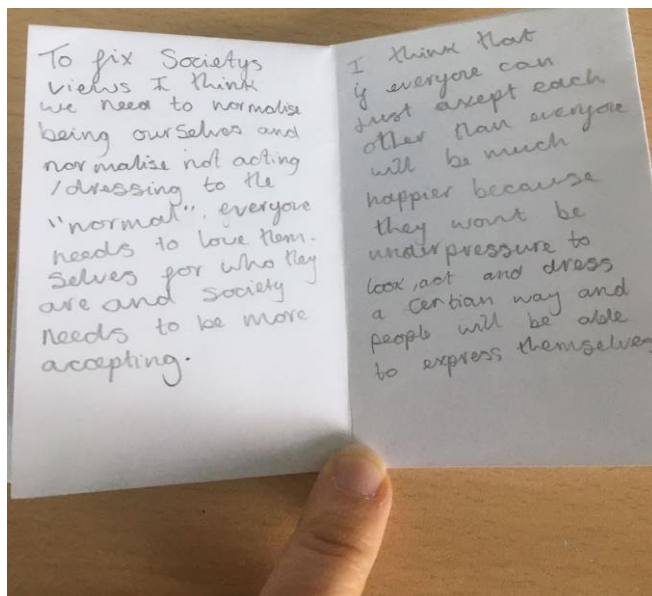 To fix Societys
views I think
we need to normalise
being ourselves and
normalise not acting
/dressing to the
"normal". everyone
needs to love them-
selves for who they
are and society
needs to be more
accepting.
I think that
if everyone can
Just axept each
other than everyone
will be much
happier because
they wont be
under pressure to
look, act and dress
a certian way and
people will be able
to express themselves